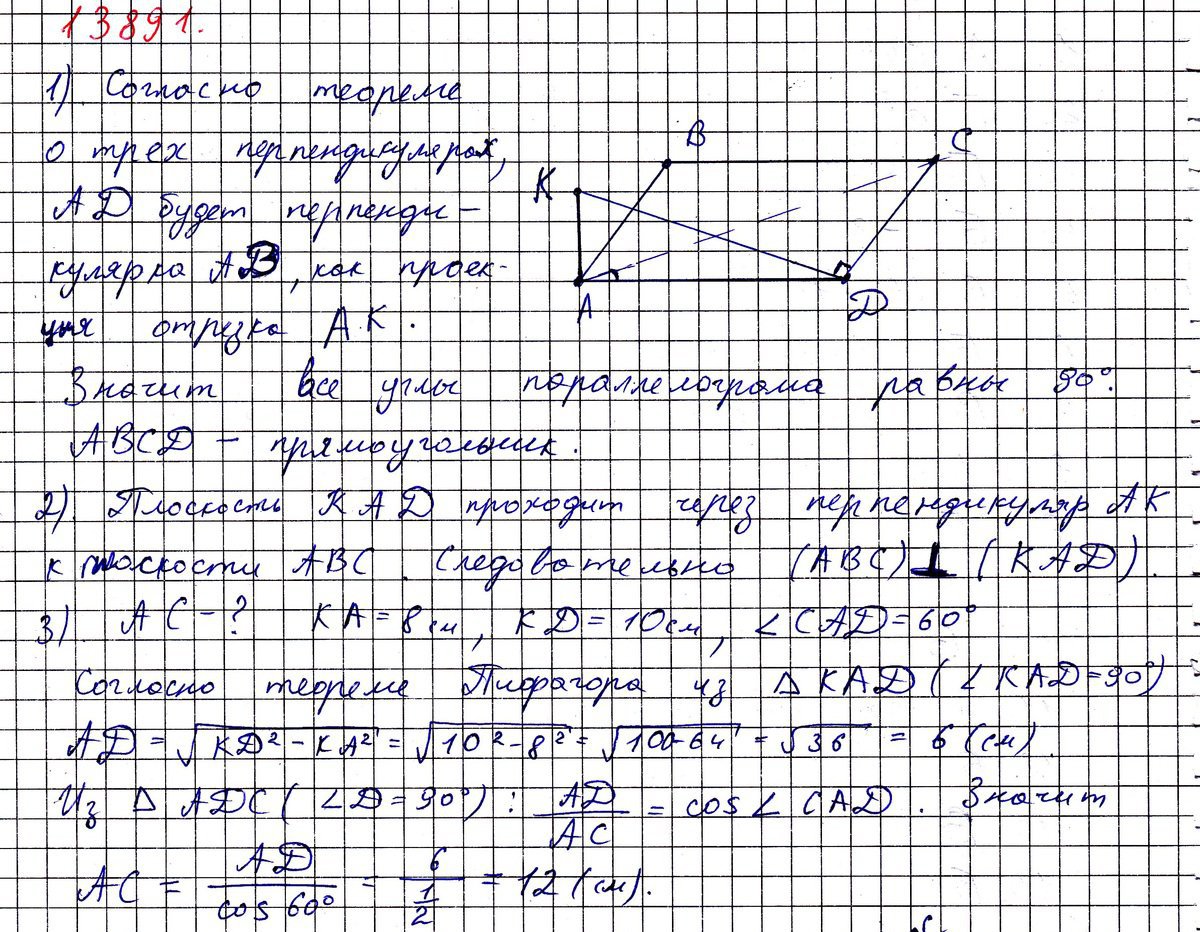 13891.
1) Согласно теореме
о трех перпендикулярах,
AD будет перпенди-
кулярна AB, как проек-
ция отрезка AK.
B
C
K
A
D
Значит все углы параллелограма равны 90°.
ABCD - прямоугольник.
2) Плоскость KAD проходит через перпендикуляр AK
к плоскости ABC. Следовательно (ABC) ⊥ (KAD).
3) AC - ? KA = 8 см, KD = 10 см, ∠CAD = 60°
Согласно теореме Пифагора из △ KAD (∠KAD = 90°)
AD = √(KD² - KA²) = √(10² - 8²) = √(100-64) = √36 = 6 (см).
Из △ ADC (∠D = 90°): AD/AC = cos ∠ CAD. Значит
AC = AD/cos 60° = 6/(1/2) = 12 (см).